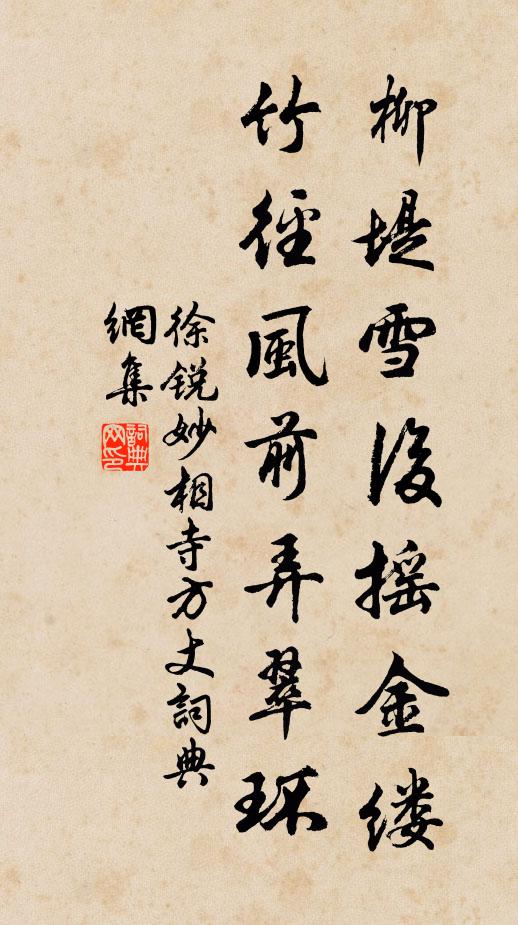 柳堤雪後摇金缕
竹徑風前弄翠環
徐鋭妙相寺方丈詞典
網集
詞典網印